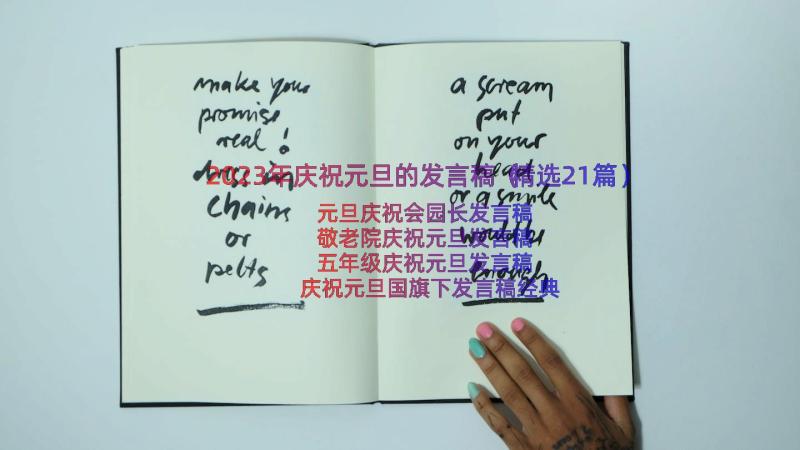 make your
promise
real!
dress in
chains
or
pelts
a scream
put
on your
head
or a smile
would be
enough
2023年庆祝元旦的发言稿(精选21篇)
元旦庆祝会园长发言稿
敬老院庆祝元旦发言稿
五年级庆祝元旦发言稿
庆祝元旦国旗下发言稿经典